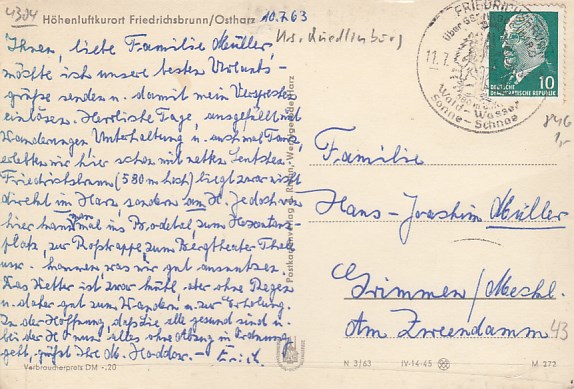 4304
Höhenluftkurort Friedrichsbrunn/Ostharz
10.7.63
Krs. Quedlinburg
Ihnen, liebe Familie Müller,
möchte ich unsere besten Urlaubs-
grüße senden u. damit mein Versprechen
einlösen. Herrliche Tage, ausgefüllt mit
Wanderungen Unterhaltung u. auch mal Tanz,
erlebten wir hier schon mit netten Leutchen.
Friedrichsbrunn (580 m hoch) liegt zwar nicht
direkt im Harz, sondern am H. Jedoch von
hier kann man ins Bodetal, zum Hexentanz-
platz, zur Roßtrappe, zum Bergtheater Thale
usw. können was wir gut ausnutzen.
Das Wetter ist zwar kühl, aber ohne Regen
u. daher gut zum Wandern u. zur Erholung.
In der Hoffnung, daß Sie alle gesund sind u.
bei der H O nun alles ohne Abzug in Ordnung
geht, grüßt Ihre M.
Erich
Verbraucherpreis DM -,20
FRIEDRICHSBRUNN
11.7.
Wald - Wasser
Sonne - Schnee
10
DEUTSCHE
DEMOKRATISCHE REPUBLIK
Familie
Hans-Joachim Müller
Grimmen/Meckl.
Am Zweendamm 43
N 3/63 IV-14-45
M 273